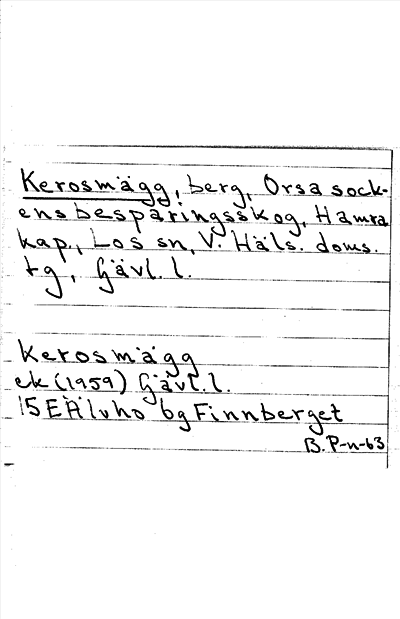 Kerosmägg, berg, Orsa sock-
ens besparingsskog, Hamra
kap., Los sn, V. Häls. doms.
tg, Gävl. l.
Kerosmägg
ek (1959) Gävl. l.
15E Älvho bg Finnberget
B. P-n-63